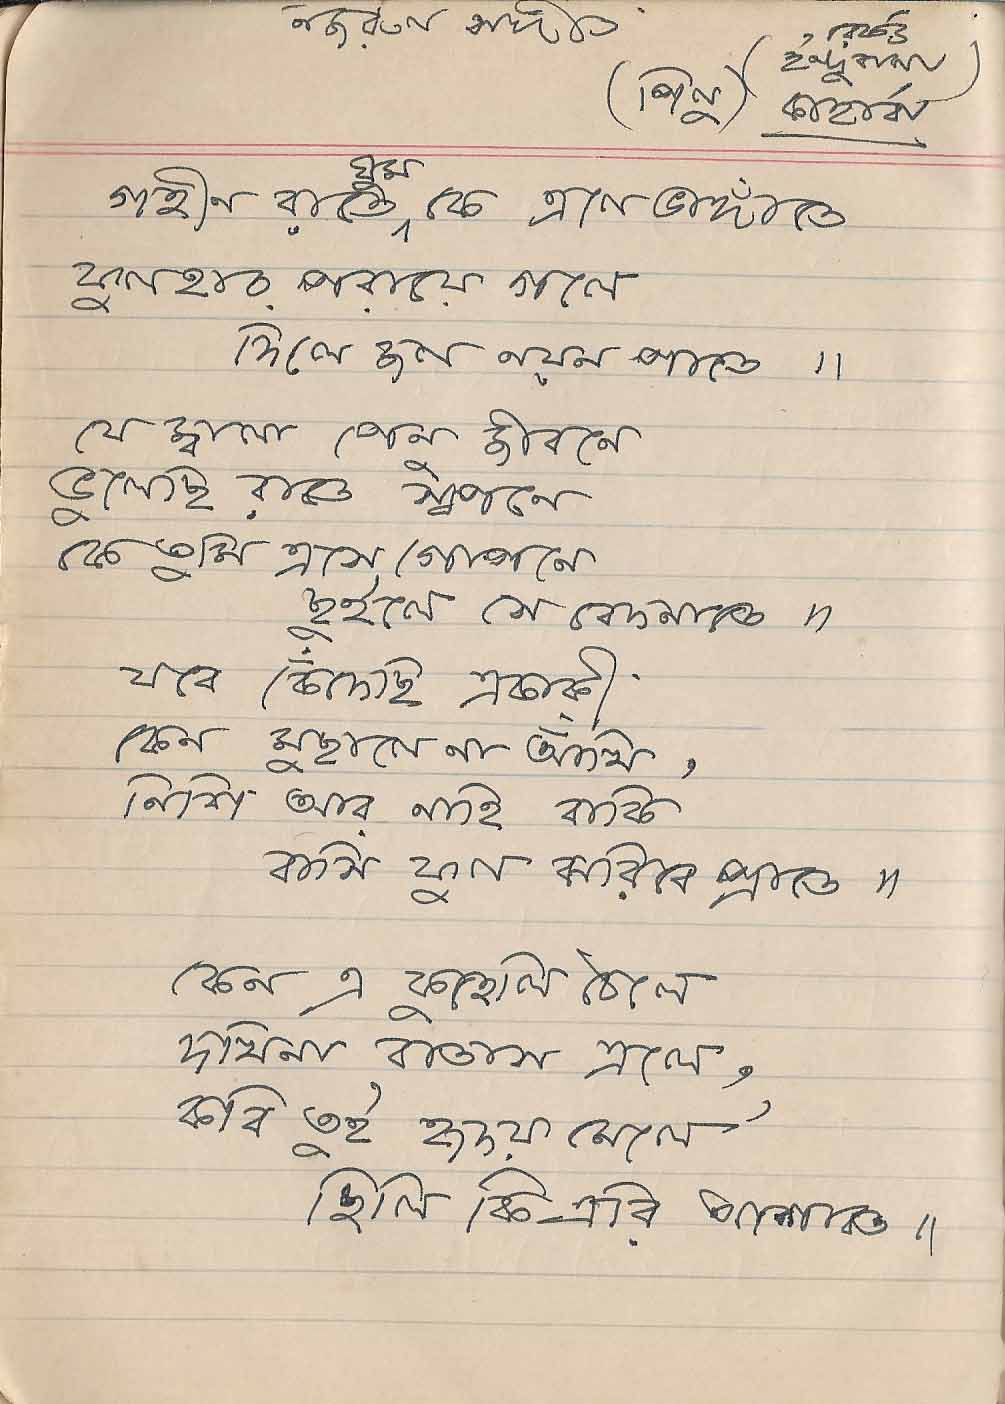 নজরুল সঙ্গীত
(পিলু) (রেকর্ড ইন্দুবালা)
কাহার্বা
গহীন রাতে ঘুম কে এলে ভাঙ্গাতে
ফুলহার পরায়ে গলে
দিলে জল নয়ন পাতে ॥
যে জ্বালা পেনু জীবনে
ভুলেছি রাতে স্বপনে
কে তুমি এসে গোপনে
ছুঁইলে সে বেদনাতে ॥
যবে কেঁদেছি একাকী
কেন মুছালে না আঁখি,
নিশি আর নাহি বাকি
বাসি ফুল ঝরিবে প্রাতে ॥
কেন এ কুহেলি ঠেলে
দখিনা বাতাস এলে,
কবি তুই হৃদয় মেলে
ছিলি কি এরি আশাতে ॥